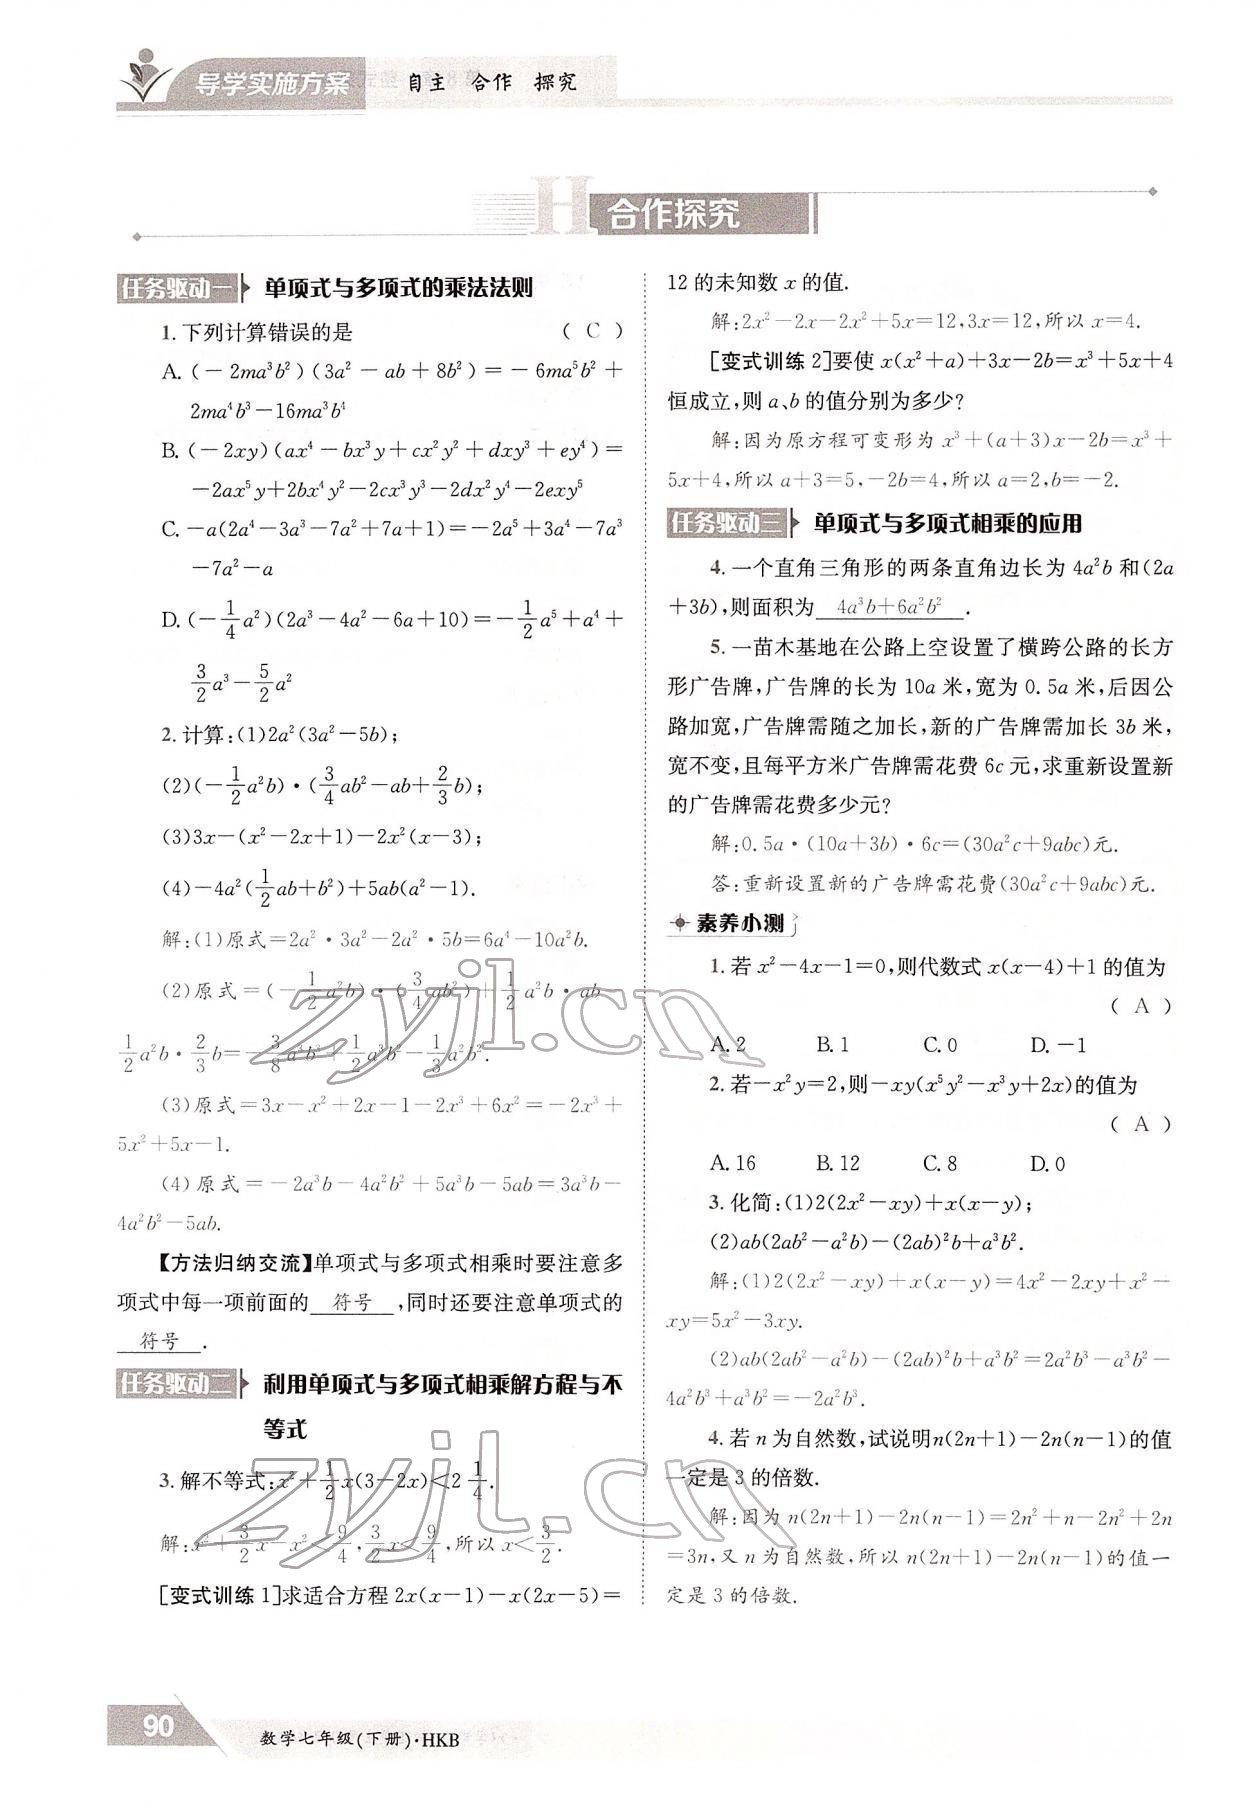 导学实施方案 自主 合作 探究
H 合作探究
任务驱动一 单项式与多项式的乘法法则
1.下列计算错误的是 ( C )
A.(-2ma³b²)(3a²-ab+8b²)=-6ma⁵b²+
2ma⁴b³-16ma³b⁴
B.(-2xy)(ax⁴-bx³y+cx²y²+dxy³+ey⁴)=
-2ax⁵y+2bx⁴y²-2cx³y³-2dx²y⁴-2exy⁵
C.-a(2a⁴-3a³-7a²+7a+1)=-2a⁵+3a⁴-7a³
-7a²-a
D.(-1/4a²)(2a³-4a²-6a+10)=-1/2a⁵+a⁴+
3/2a³-5/2a²
2.计算:(1)2a²(3a²-5b);
(2)(-1/2a²b)·(3/4ab²-ab+2/3b);
(3)3x-(x²-2x+1)-2x²(x-3);
(4)-4a²(1/2ab+b²)+5ab(a²-1).
解:(1)原式=2a²·3a²-2a²·5b=6a⁴-10a²b.
(2)原式=(-1/2a²b)·(3/4ab²)+1/2a²b·ab-
1/2a²b·2/3b=-3/8a³b³+1/2a³b²-1/3a²b².
(3)原式=3x-x²+2x-1-2x³+6x²=-2x³+
5x²+5x-1.
(4)原式=-2a³b-4a²b²+5a³b-5ab=3a³b-
4a²b²-5ab.
【方法归纳交流】单项式与多项式相乘时要注意多
项式中每一项前面的 符号 ,同时还要注意单项式的
符号 .
任务驱动二 利用单项式与多项式相乘解方程与不
等式
3.解不等式:x²+1/2x(3-2x)<2 1/4.
解:x²+3/2x-x²<9/4,3/2x<9/4,所以x<3/2.
[变式训练1]求适合方程2x(x-1)-x(2x-5)=
12的未知数x的值.
解:2x²-2x-2x²+5x=12,3x=12,所以x=4.
[变式训练2]要使x(x²+a)+3x-2b=x³+5x+4
恒成立,则a、b的值分别为多少?
解:因为原方程可变形为x³+(a+3)x-2b=x³+
5x+4,所以a+3=5,-2b=4,所以a=2,b=-2.
任务驱动三 单项式与多项式相乘的应用
4.一个直角三角形的两条直角边长为4a²b和(2a
+3b),则面积为 4a³b+6a²b² .
5.一苗木基地在公路上空设置了横跨公路的长方
形广告牌,广告牌的长为10a米,宽为0.5a米,后因公
路加宽,广告牌需随之加长,新的广告牌需加长3b米,
宽不变,且每平方米广告牌需花费6c元,求重新设置新
的广告牌需花费多少元?
解:0.5a·(10a+3b)·6c=(30a²c+9abc)元.
答:重新设置新的广告牌需花费(30a²c+9abc)元.
素养小测
1.若x²-4x-1=0,则代数式x(x-4)+1的值为
( A )
A.2 B.1 C.0 D.-1
2.若-x²y=2,则-xy(x⁵y²-x³y+2x)的值为
( A )
A.16 B.12 C.8 D.0
3.化简:(1)2(2x²-xy)+x(x-y);
(2)ab(2ab²-a²b)-(2ab)²b+a³b².
解:(1)2(2x²-xy)+x(x-y)=4x²-2xy+x²-
xy=5x²-3xy.
(2)ab(2ab²-a²b)-(2ab)²b+a³b²=2a²b³-a³b²-
4a²b³+a³b²=-2a²b³.
4.若n为自然数,试说明n(2n+1)-2n(n-1)的值
一定是3的倍数.
解:因为n(2n+1)-2n(n-1)=2n²+n-2n²+2n
=3n,又n为自然数,所以n(2n+1)-2n(n-1)的值一
定是3的倍数.
zyjl.cn
zyjl.cn
90 数学七年级(下册)·HKB